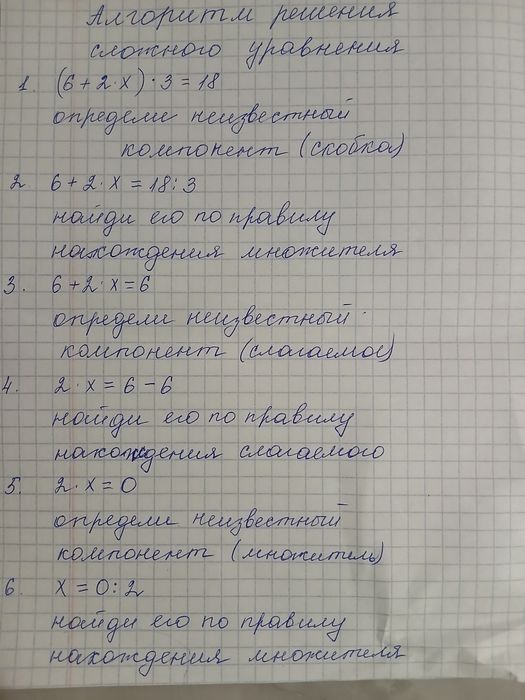 Алгоритм решения
сложного уравнения
1. (6 + 2 · x) · 3 = 18
определи неизвестный
компонент (скобка)
2. 6 + 2 · x = 18 : 3
найди его по правилу
нахождения множителя
3. 6 + 2 · x = 6
определи неизвестный
компонент (слагаемое)
4. 2 · x = 6 - 6
найди его по правилу
нахождения слагаемого
5. 2 · x = 0
определи неизвестный
компонент (множитель)
6. x = 0 : 2
найди его по правилу
нахождения множителя